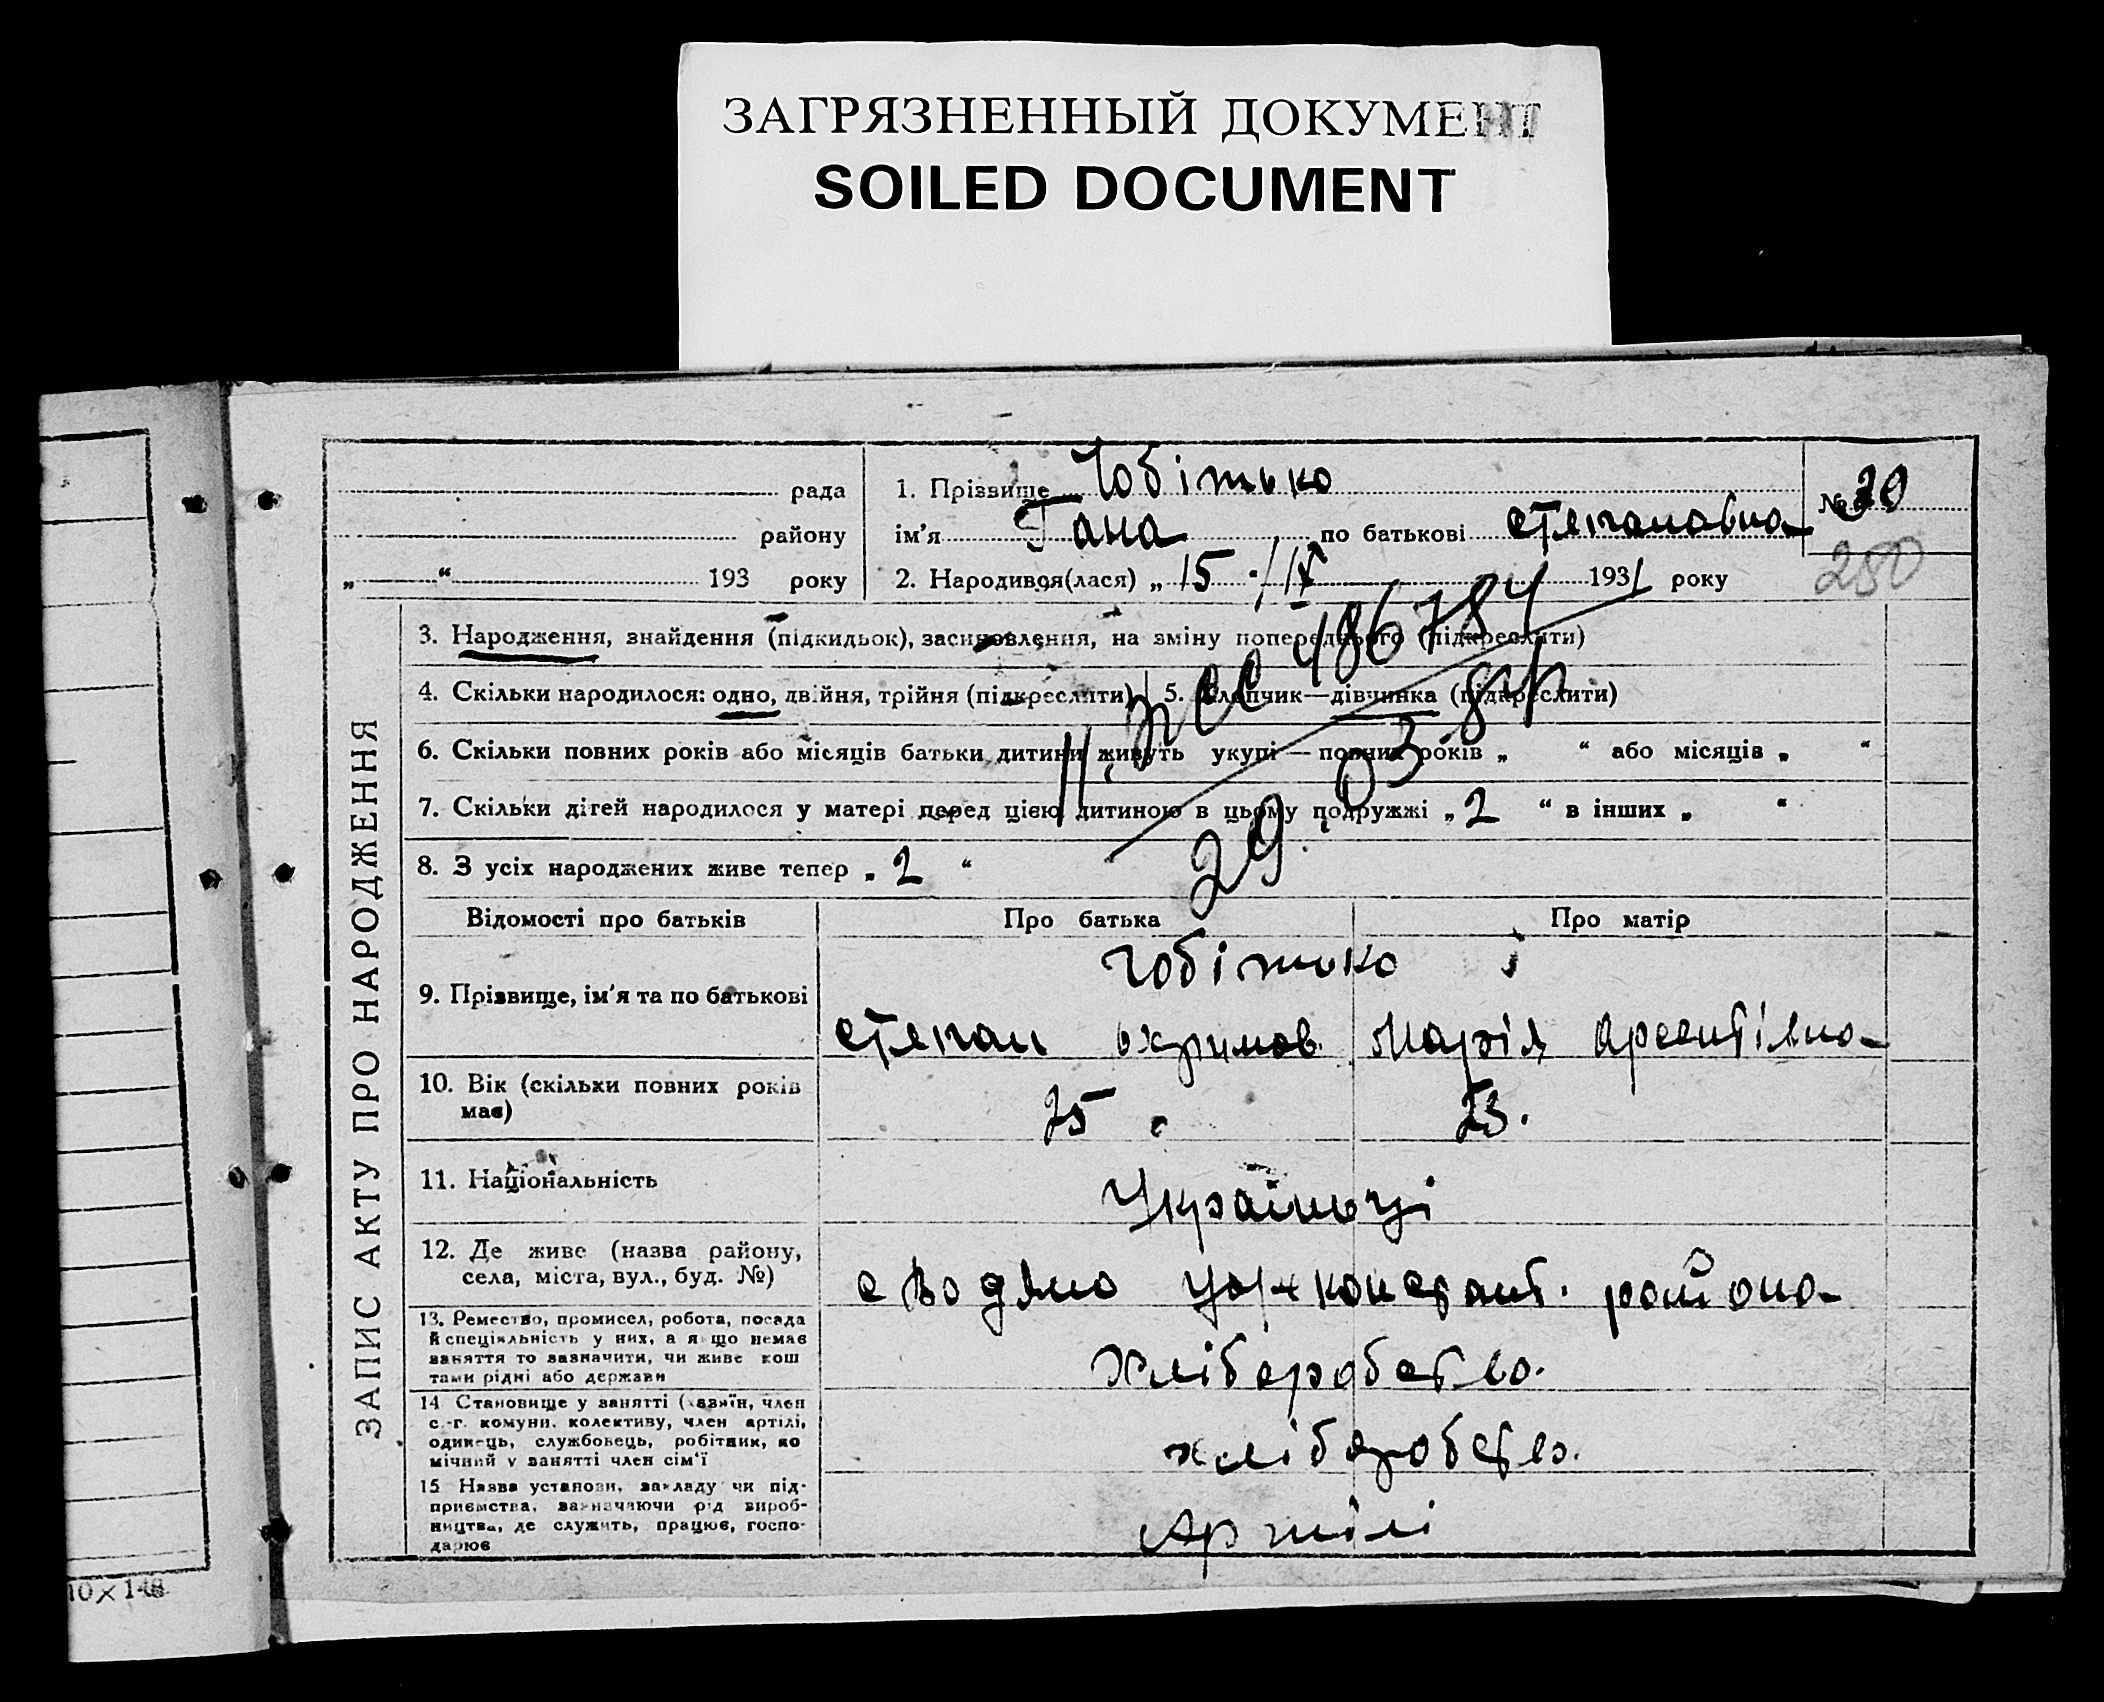 ЗАГРЯЗНЕННЫЙ ДОКУМЕНТ
SOILED DOCUMENT
рада
району
„ “ 193 року
1. Прізвище Чобітько
ім'я Гана по батькові степановна
2. Народився(лася) „ 15 “ /ІХ 1931 року
№ 30
250
ЗАПИС АКТУ ПРО НАРОДЖЕННЯ
3. Народження, знайдення (підкидьок), засиновлення, на зміну попереднього (підкреслити)
4. Скільки народилося: одно, двійня, трійня (підкреслити)
5. Хлопчик—дівчинка (підкреслити)
6. Скільки повних років або місяців батьки дитини живуть укупі — повних років „ “ або місяців „ “
7. Скільки дітей народилося у матері перед цією дитиною в цьому подружжі „ 2 “ в інших „ “
8. З усіх народжених живе тепер „ 2 “
486784
29. 03
Відомості про батьків Про батька Про матір
9. Прізвище, ім'я та по батькові
Чобітько і
степан охримов. Марія
10. Вік (скільки повних років
має)
25 23.
11. Національність
Українці
12. Де живе (назва району,
села, міста, вул., буд. №)
району
13. Ремество, промисел, робота, посада
й спеціяльність у них, а якщо немає
заняття то зазначити, чи живе кош
тами рідні або держави
Хліборобство.
14 Становище у занятті (хазяїн, член
с.-г. комуни, колективу, член артілі,
одинець, службовець, робітник, по
мічний у занятті член сім'ї
хліборобство.
15 Назва установи, закладу чи під-
приємства, зазначаючи рід вироб-
ництва, де служить, працює, госпо-
дарює
Артілі
10×148